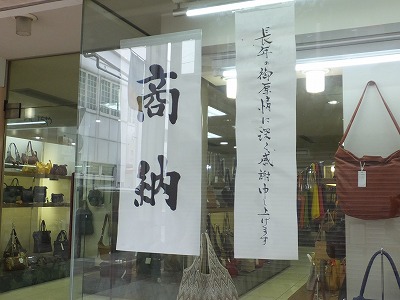 長年の御厚情に深く感謝申し上げます
商納